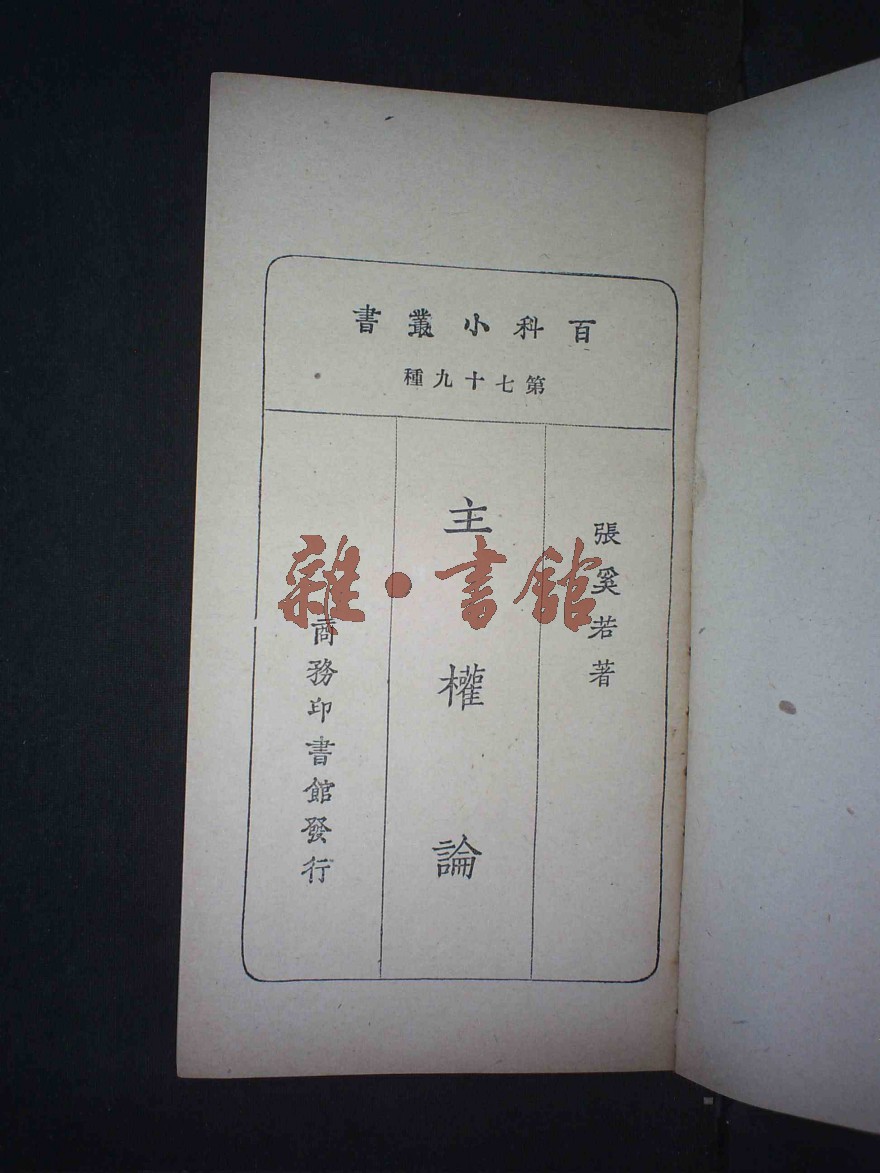 百科小叢書
第七十九種
張奚若著
主權論
商務印書館發行
雜·書館